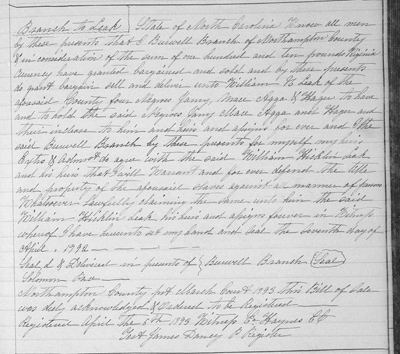 Branch to Leak } State of North Carolina Know all men
by these presents that I Burwell Branch of Northampton County
& in consideration of the sum of one hundred and ten pounds Virginia
Currency have granted bargained and sold and by these presents
do grant bargain sell and deliver unto William H Leak of the
aforesaid County four Negroes Jamy, Mace Agga & Hagar to have
and to hold the said Negroes Jamy Mace Agga and Hagar and
their increase to him and heirs and assigns for ever and I the
said Burwell Branch by these presents for myself my heirs
Extrs & Admrs do agree with the said William Hicklin Leak
and his heirs that I will Warrant and for ever defend the title
and property of the aforesaid slaves against all manner of persons
Whatsoever lawfully claiming the same unto him the said
William Hicklin Leak his heirs and assigns forever in Witness
whereof I have hereunto set my hand and seal the seventh day of
April 1792
Seal,d & Delivered in presents of } Burwell Branch (Seal)
Solomon
Northampton County pct March Court 1793 This Bill of Sale
was duly acknowledged & Ordered to be Registered
Registered April the 5th 1793 Witness Haynes CC
Test James Dancy P. Register